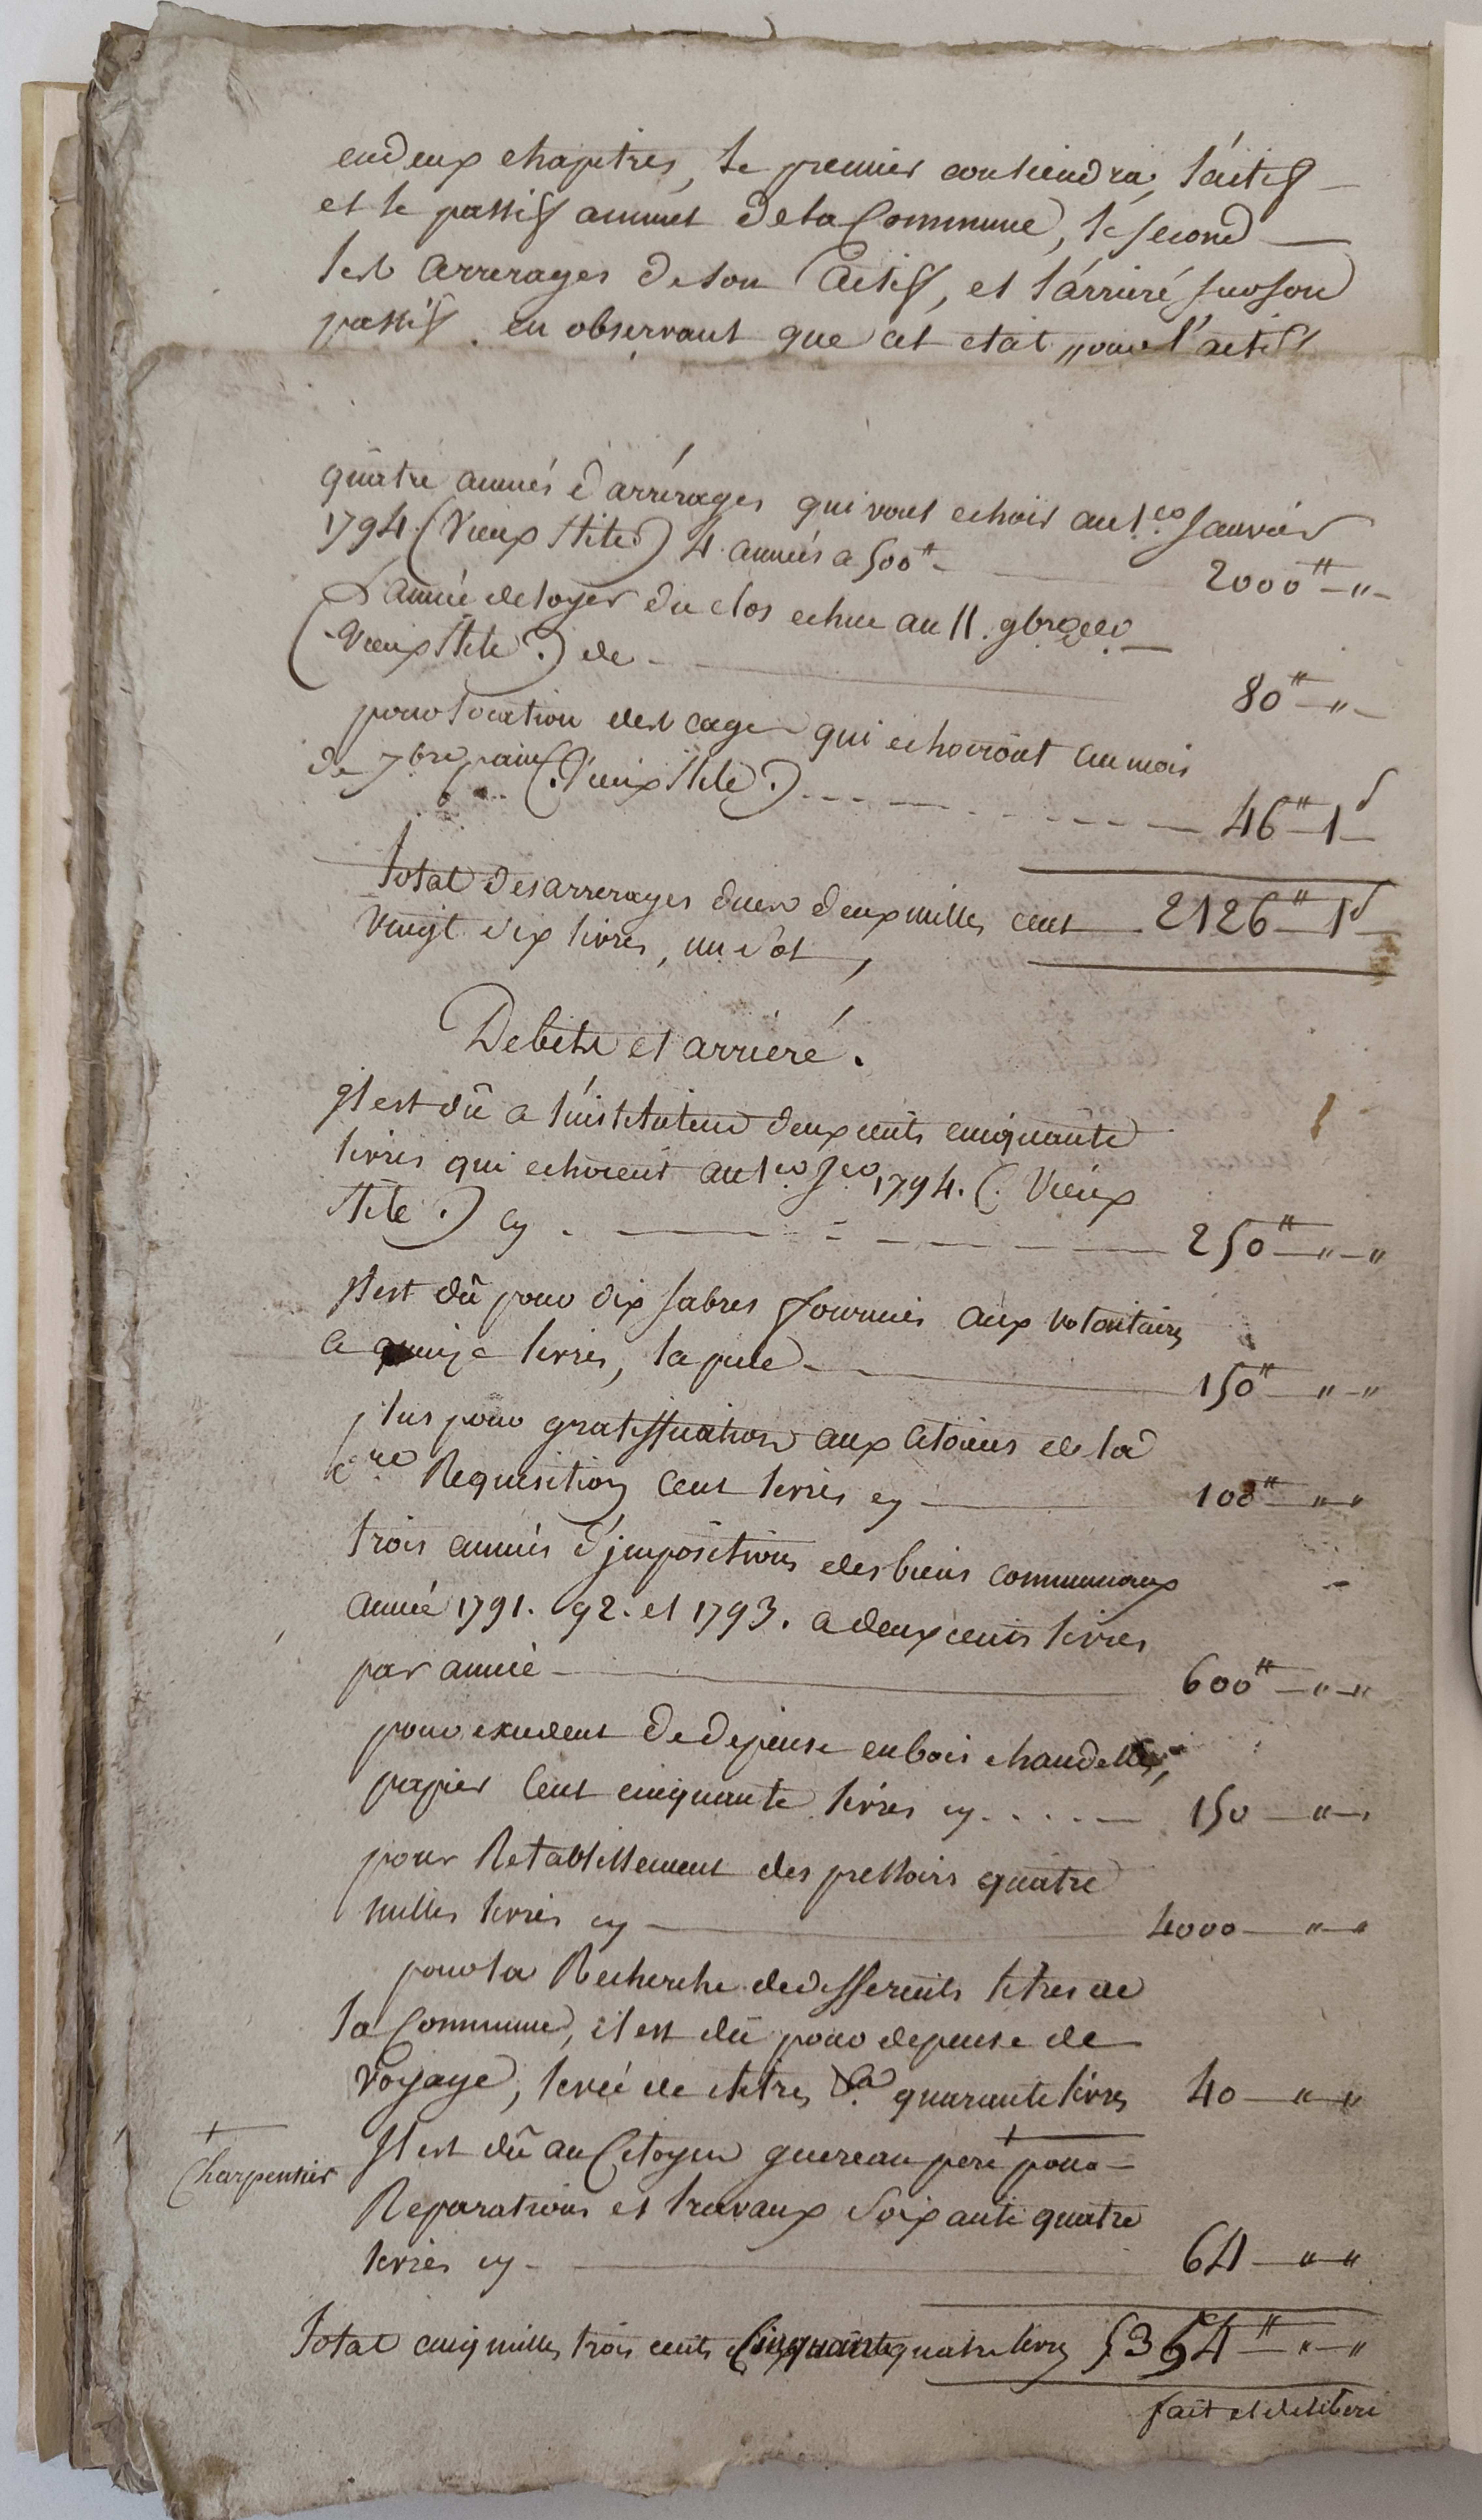 en deux chapitres, le premier contiendra, l'actif
et le passif annuel de la Commune, le second
les arrerages de son actif, et l'arrieré sur son
passif. en observant que cet etat, pour l'actif
quatre années d'arrérages qui vont echoir au 1.er Janvier
1794 (Vieux Stile) 4 années a 500tt — 2000tt — "
L'année de loyer du clos echue au 11. 9bre
(Vieux Stile.) de — 80tt — "
pour location des cages qui echoiront au mois
de 7bre (Vieux Stile.) — 46tt — 1s
Total des arrerages dues deux milles cent — 2126tt — 1s
vingt six livres, un sol,
Debets et arrieré.
Il est dû a l'instituteur deux cents cinquante
livres qui echoient au 1.er Jer 1794. (Vieux
stile.) cy — 250tt — " — "
Il est dû pour dix sabres fournies aux volontaires
a quinze livres, la piece — 150tt — " — "
plus pour gratiffication aux citoiens de la
1ere Requisition cent livres cy — 100tt — " — "
trois années d'jmpositions des biens communaux
année 1791. 92. et 1793. a deux cents livres
par année — 600tt — " — "
pour excedent de depense en bois chandelles,
papier cent cinquante livres cy . . . . — 150 — "
pour Retablissement des pressoirs quatre
milles livres cy — 4000 — " — "
pour la Recherche de differents titres de
la Commune, il est dû pour depense de
voyage, levée de titres &a. quarante livres 40 — " — "
Il est dû au Citoyen guereau pere + pour —
+ Charpentier
Reparations et travaux soixante quatre
livres cy — 64 — " — "
Total cinq milles trois cents cinquante quatre livres 5354tt — " — "
fait et deliberé